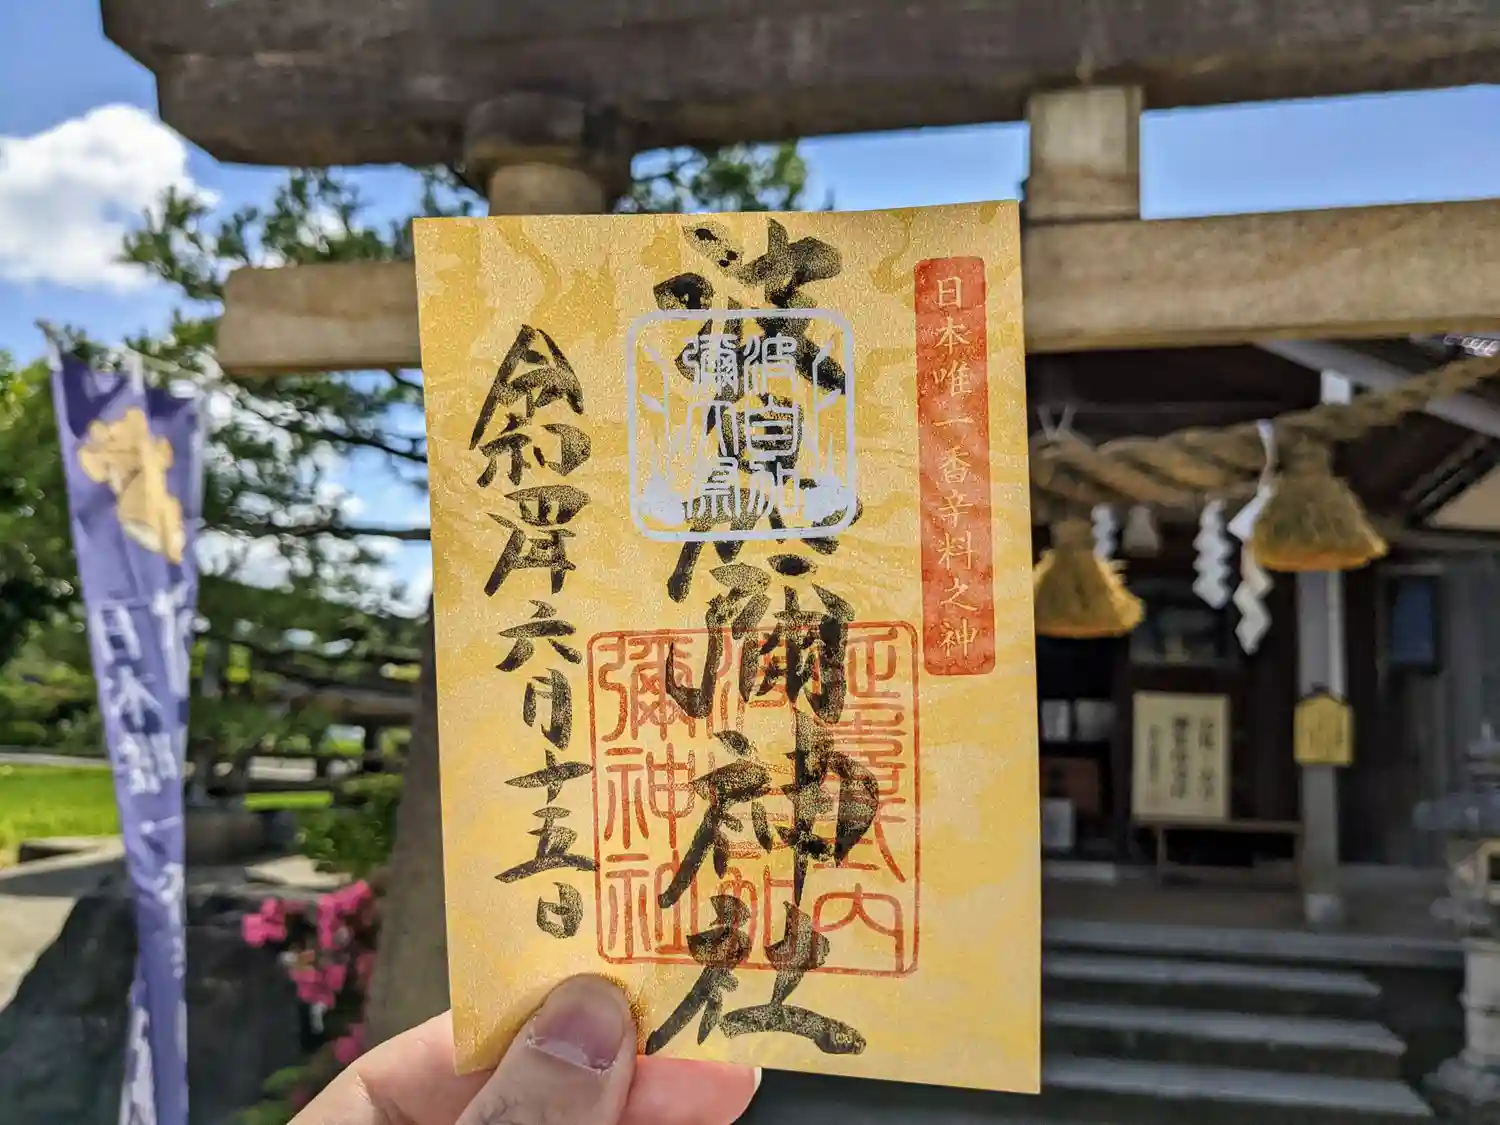 日本唯一香辛料之神
波自加彌神社
波自加
彌大祭
延喜式内
波自加
彌神社
令和四年六月十五日
日本唯一